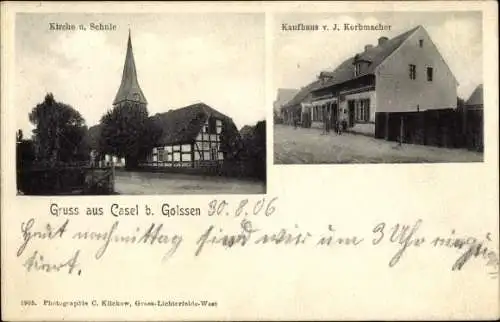 Kirche u. Schule
Kaufhaus v. J. Korbmacher
Gruss aus Casel b. Golssen 30.8.06
Heut nachmittag sind wir um 3 Uhr
1905. Photographie C. Klickow, Gross-Lichterfelde-West